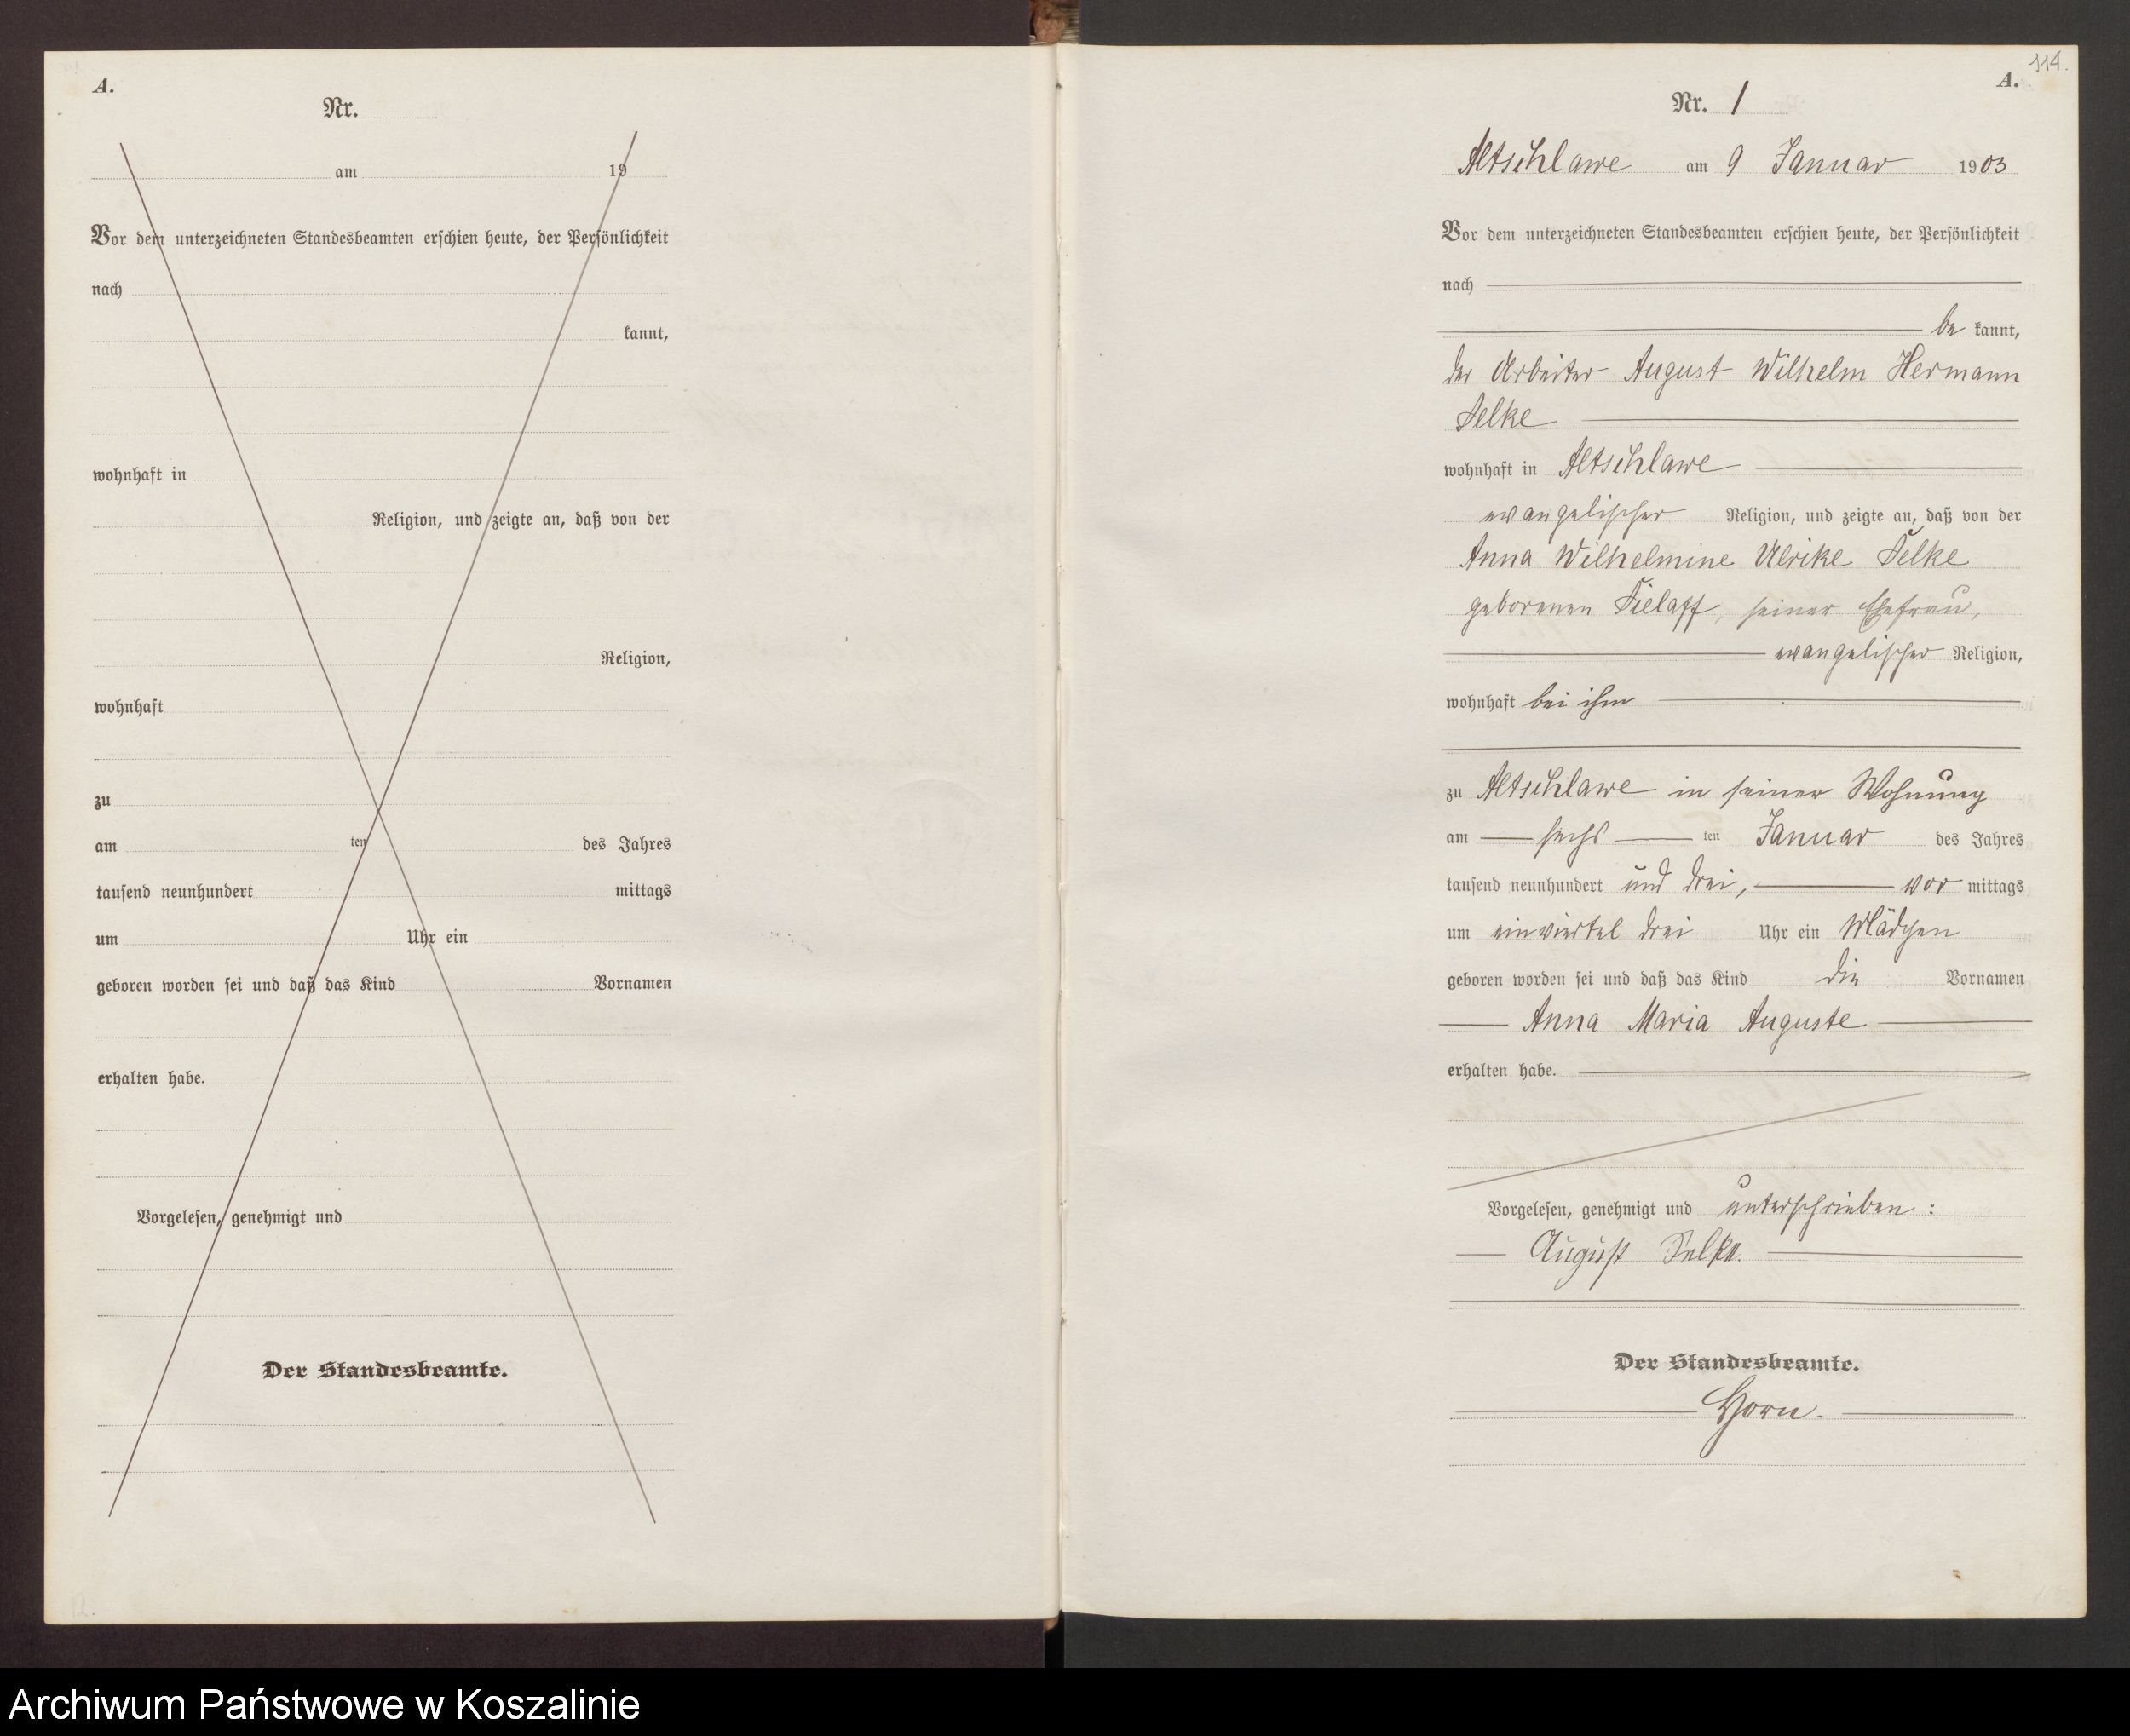 A.
Nr.
am 19
Vor dem unterzeichneten Standesbeamten erschien heute, der Persönlichkeit
nach
kannt,
wohnhaft in
Religion, und zeigte an, daß von der
Religion,
wohnhaft
zu
am ten des Jahres
tausend neunhundert mittags
um Uhr ein
geboren worden sei und daß das Kind Vornamen
erhalten habe.
Vorgelesen, genehmigt und
Der Standesbeamte.
114.
A.
Nr. 1
Altschlawe am 9 Januar 1903
Vor dem unterzeichneten Standesbeamten erschien heute, der Persönlichkeit
nach
be kannt,
der Arbeiter August Wilhelm Hermann
Selke
wohnhaft in Altschlawe
evangelischer Religion, und zeigte an, daß von der
Anna Wilhelmine Ulrike Selke
geborenen Tielaff, seiner Ehefrau,
evangelischer Religion,
wohnhaft bei ihm
zu Altschlawe in seiner Wohnung
am sechs ten Januar des Jahres
tausend neunhundert und drei, vor mittags
um einviertel drei Uhr ein Mädchen
geboren worden sei und daß das Kind die Vornamen
Anna Maria Auguste
erhalten habe.
Vorgelesen, genehmigt und unterschrieben:
August Selke.
Der Standesbeamte.
Horn.
Archiwum Państwowe w Koszalinie